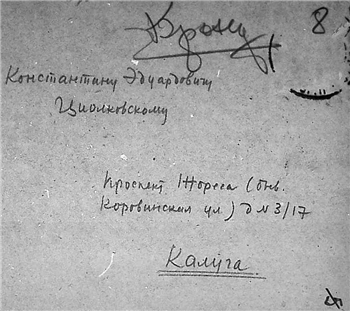 8
Константину Эдуардовичу
Циолковскому
Проспект Жореса (быв.
Коровинская ул.) д № 3/17
Калуга.